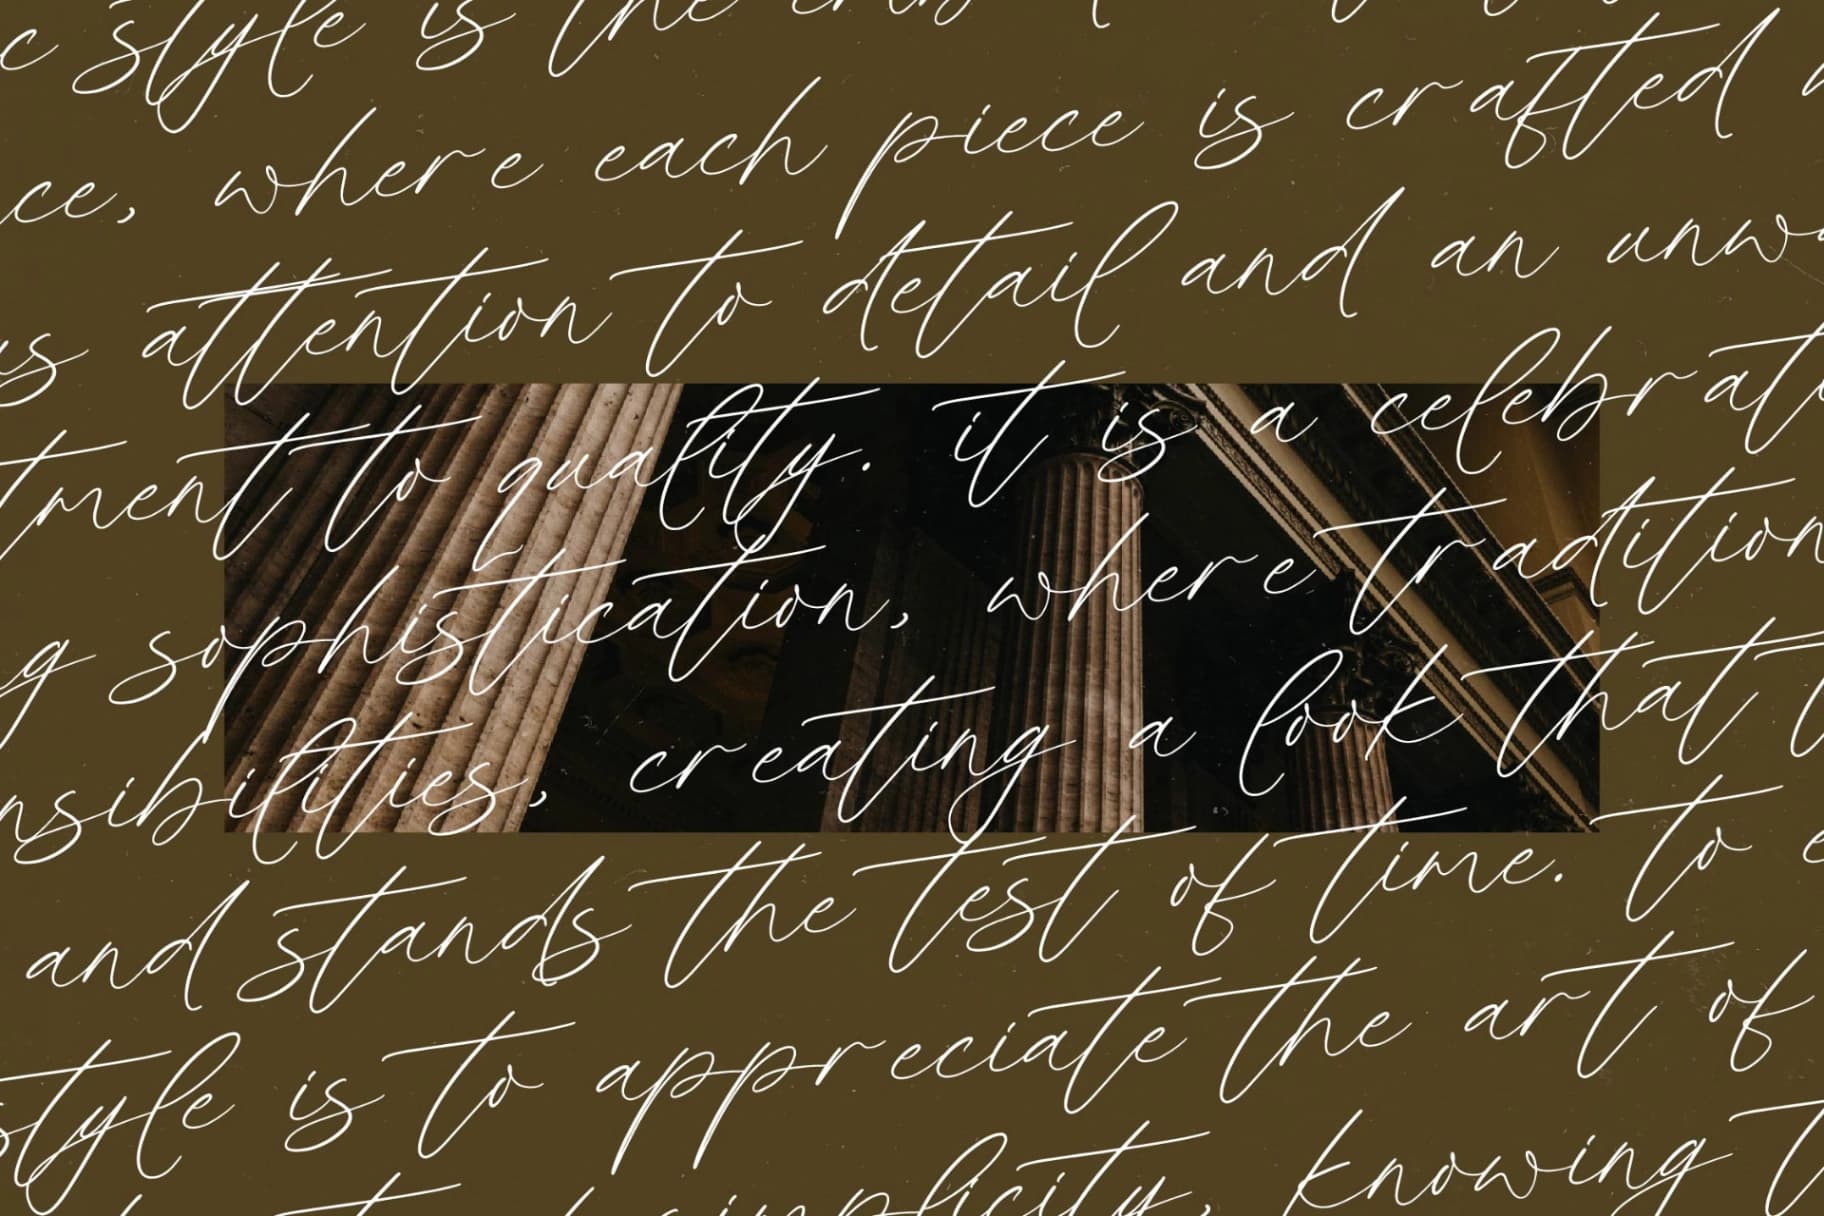 c style is the
ce, where each piece is crafted
us attention to detail and an unw
tment to quality. it is a celebrati
g sophistication, where tradition
nsibilities, creating a look that t
and stands the test of time. to e
style is to appreciate the art of
simplicity, knowing t